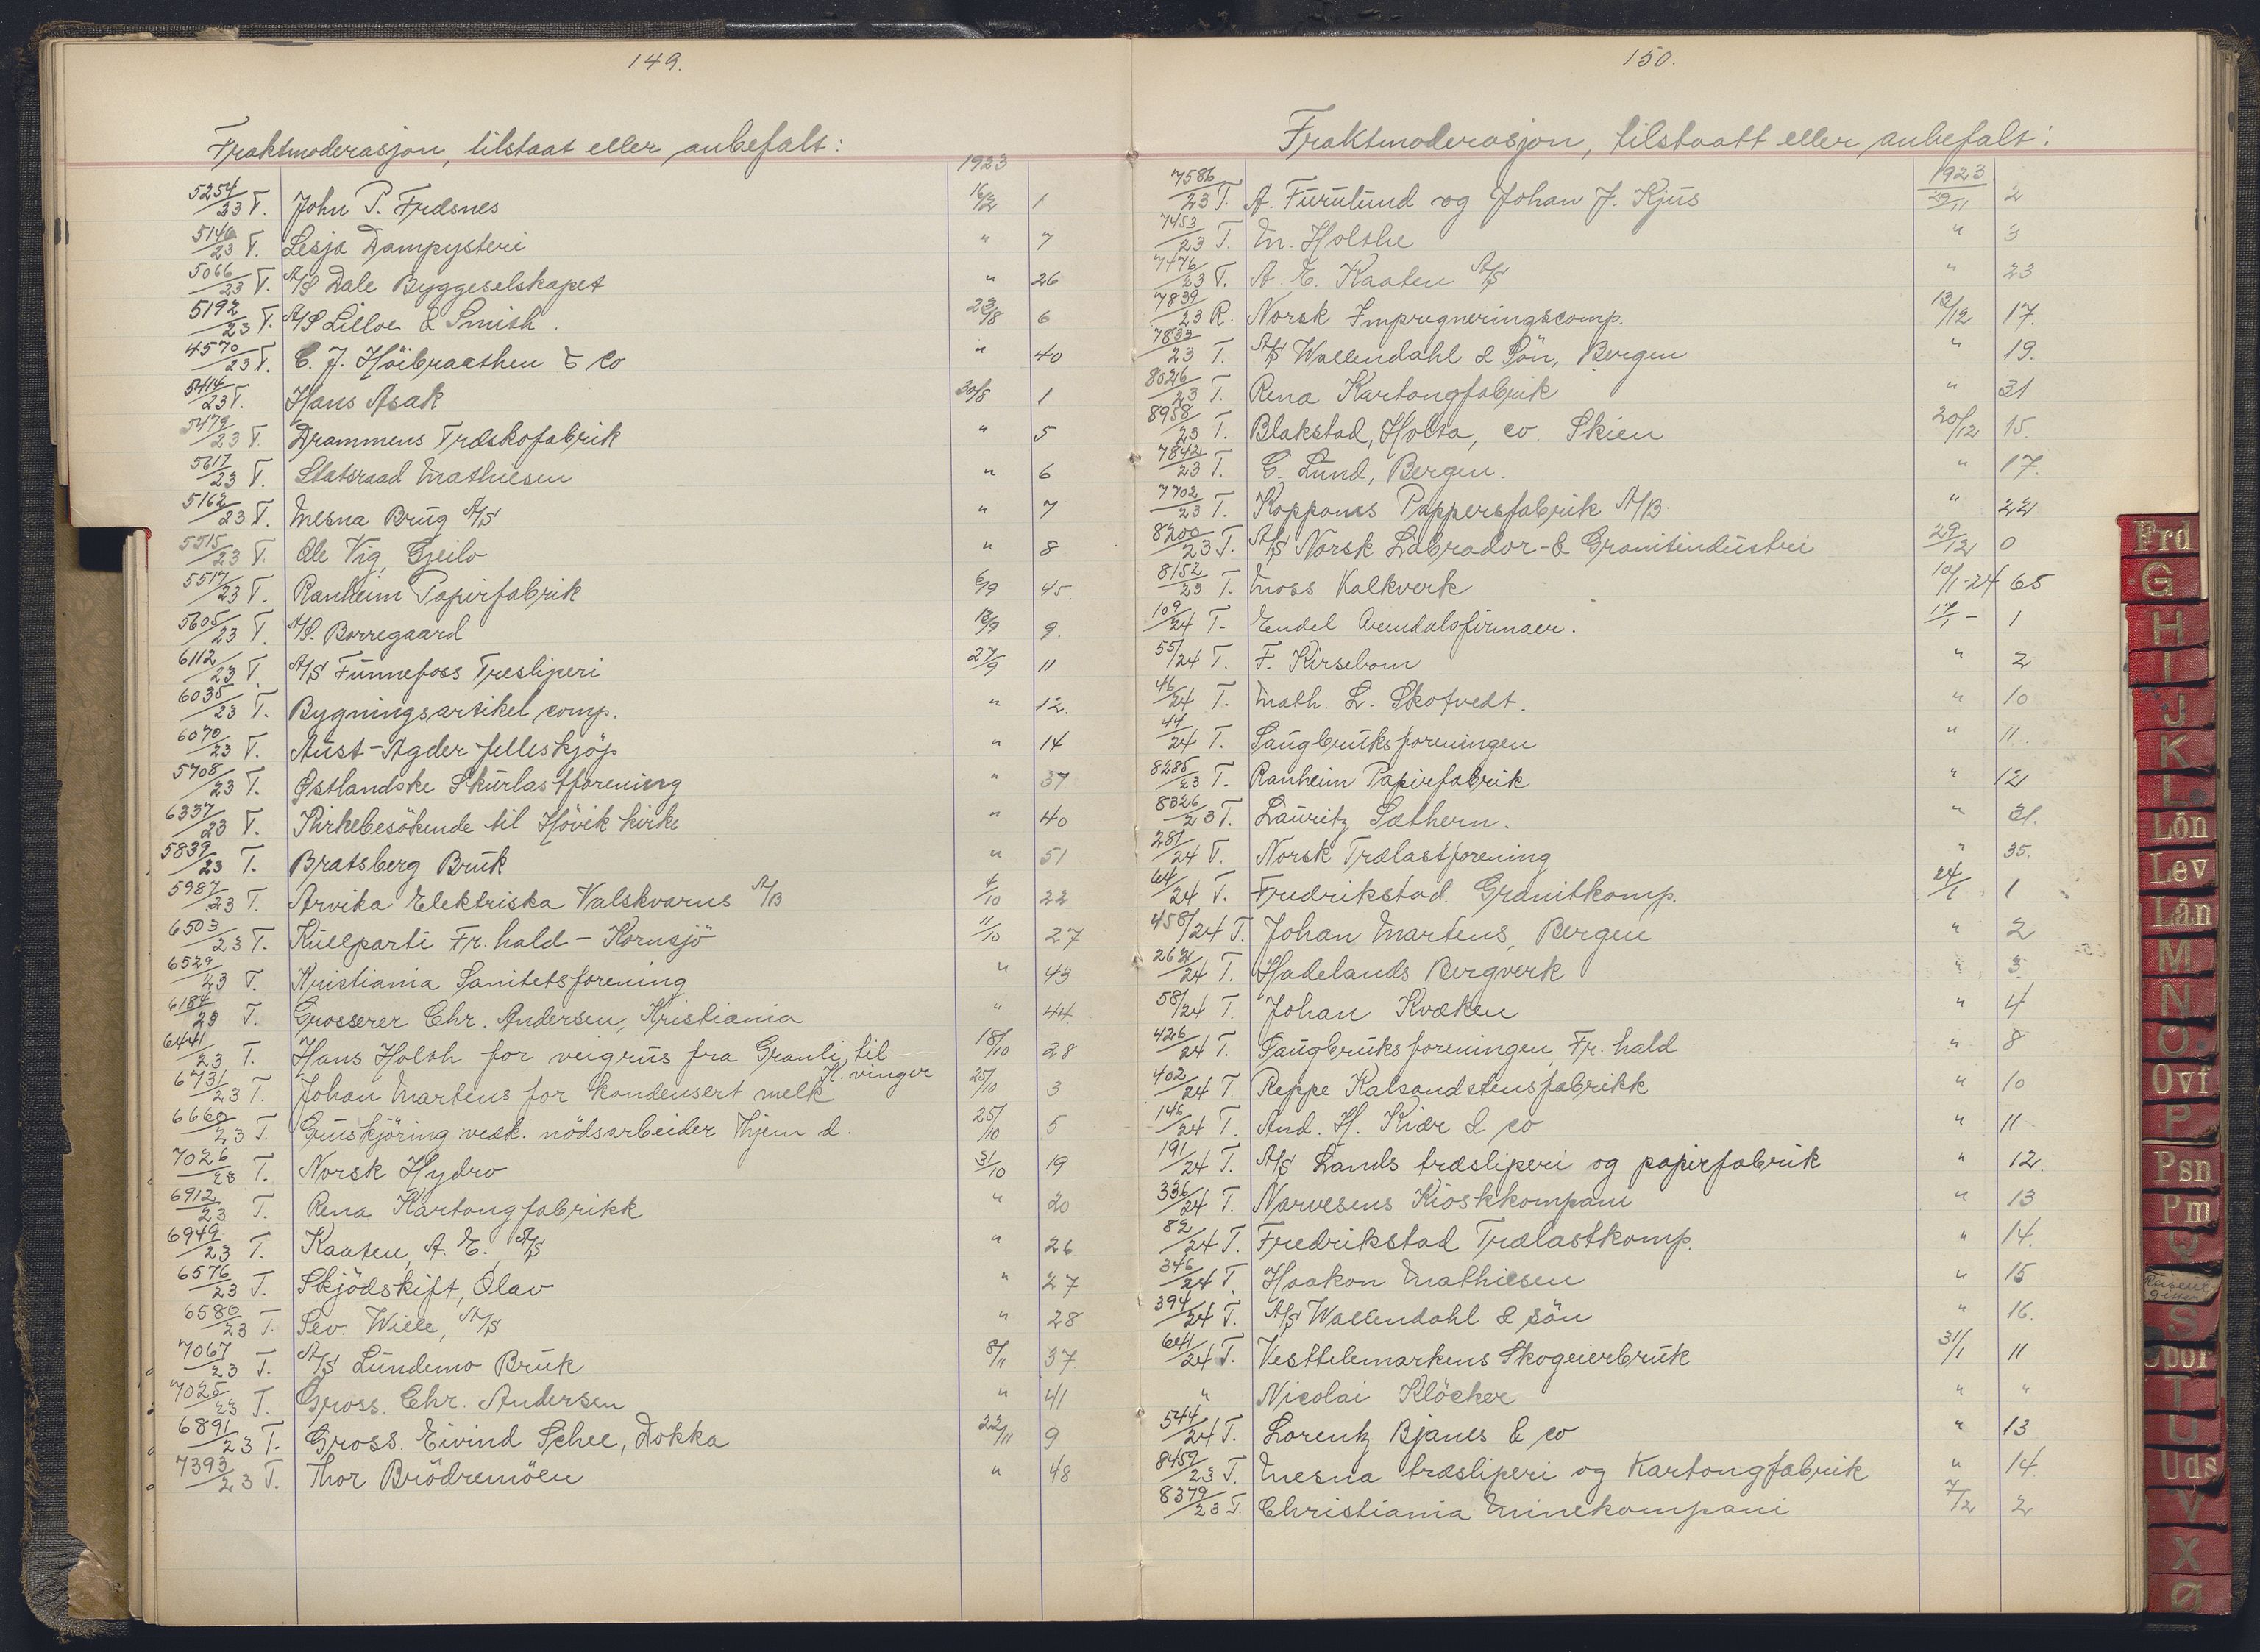 149.
Fraktmoderasjon, tilstaat eller anbefalt:
1923
5254/23 T. John P. Frdsnes 16/2 1
5140/23 T. Lesja Dampysteri " 7
5066/23 T. A/S Dale Byggeselskapet " 26
5192/23 T. A/S Lilloe & Smith. 23/8 6
4570/23 T. C. J. Höibraathen & Co " 40
5414/23 T. Hans Asak 30/8 1
5479/23 T. Drammens Træskofabrik " 5
5617/23 T. Statsraad Mathiesen " 6
5162/23 T. Mesna Brug A/S " 7
5515/23 T. Ole Vig, Gjeilo " 8
5517/23 T. Ranheim Papirfabrik 6/9 45.
5605/23 T. A/S. Borregaard 13/9 9.
6112/23 T. A/S Funnefoss Tresliperi 27/9 11
6035/23 T. Bygningsartikel comp. " 12.
6070/23 T. Aust-Agder felleskjöp " 14
5708/23 T. Østlandske Skurlastforening " 37
6337/23 T. Kirkebesökende til Hövik kirke " 40
5839/23 T. Bratsberg Bruk " 51
5987/23 T. Arvika Elektriska Valskvarns A/B 4/10 22
6503/23 T. Kullparti Fr.hald - Kornsjö 11/10 27
6529/23 T. Kristiania Sanitetsforening " 43
6184/23 T. Grosserer Chr. Andersen, Kristiania " 44
6441/23 T. Hans Holth for veigrus fra Granli, til K.vinger 18/10 28
6731/23 T. Johan Martens for kondensert melk 25/10 3
6660/23 T. Gruskjöring vedk. nödsarbeider Thjem d. 25/10 5
7026/23 T. Norsk Hydro 31/10 19
6912/23 T. Rena Kartongfabrikk " 20
6949/23 T. Kaaten, A. E. A/S " 26
6576/23 T. Skjödskift, Olav " 27
6580/23 T. Sev. Wiele, A/S " 28
7067/23 T. A/S Lundemo Bruk 8/11 37
7025/23 T. Gross. Chr. Andersen " 41
6891/23 T. Gross. Eivind Schee, Dokka 22/11 9
7393/23 T. Thor Brödremöen " 48
150.
Fraktmoderasjon, tilstaatt eller anbefalt:
1923
7586/23 T. A. Furulund og Johan J. Kjus 29/11 2
7453/23 T. M. Holthe " 3
7476/23 T. A. E. Kaaten A/S " 23
7839/23 R. Norsk Impregneringscomp. 13/12 17.
7833/23 T. A/S Wallendahl & Sön, Bergen " 19.
8026/23 T. Rena Kartongfabrik " 31
8958/23 T. Blakstad, Holta, co. Skien 20/12 15.
7842/23 T. C. Lund, Bergen. " 17.
7702/23 T. Koppoms Pappersfabrik A/B. " 22
8200/23 T. A/S Norsk Labrador- & Granitindustri 29/12 0
8152/23 T. Moss Kalkverk 10/1-24 65
109/24 T. Endel Arendalsfirmaer. 17/1 - 1
55/24 T. F. Kirsebom " 2
46/24 T. Math. L. Skotvedt. " 10
44/24 T. Saugbruksforeningen " 11.
8285/23 T. Ranheim Papirfabrik " 12
8326/23 T. Lauritz Sæthern. " 31.
281/24 T. Norsk Trælastforening " 35.
64/24 T. Fredrikstad. Granitkomp. 24/1 1
458/24 T. Johan Martens, Bergen " 2
262/24 T. Hadelands Bergverk " 3
58/24 T. Johan Kvæken " 4
426/24 T. Saugbruksforeningen, Fr.hald " 8
402/24 T. Reppe Kalsandstensfabrikk " 10
146/24 T. And. H. Kiær & co " 11
191/24 T. A/S Lands træsliperi og papirfabrik " 12.
336/24 T. Narvesens Kioskkompani " 13
82/24 T. Fredrikstad Trælastkomp. " 14.
346/24 T. Haakon Mathiesen " 15
394/24 T. A/S Wallendahl & sön " 16.
641/24 T. Vesttelemarkens Skogeierbruk 31/1 11
" Nicolai Klöcker " "
544/24 T. Lorentz Bjanes & co " 13
8459/23 T. Mesna træsliperi og Kartongfabrik " 14
8379/23 T. Christiania Minekompani 7/2 2
Frd
G
H
I
J
K
L
Lön
Lev
Lån
M
N
O
Ovf
P
Psn
Pm
Q
S
T
U
Uds
V
X
Ø